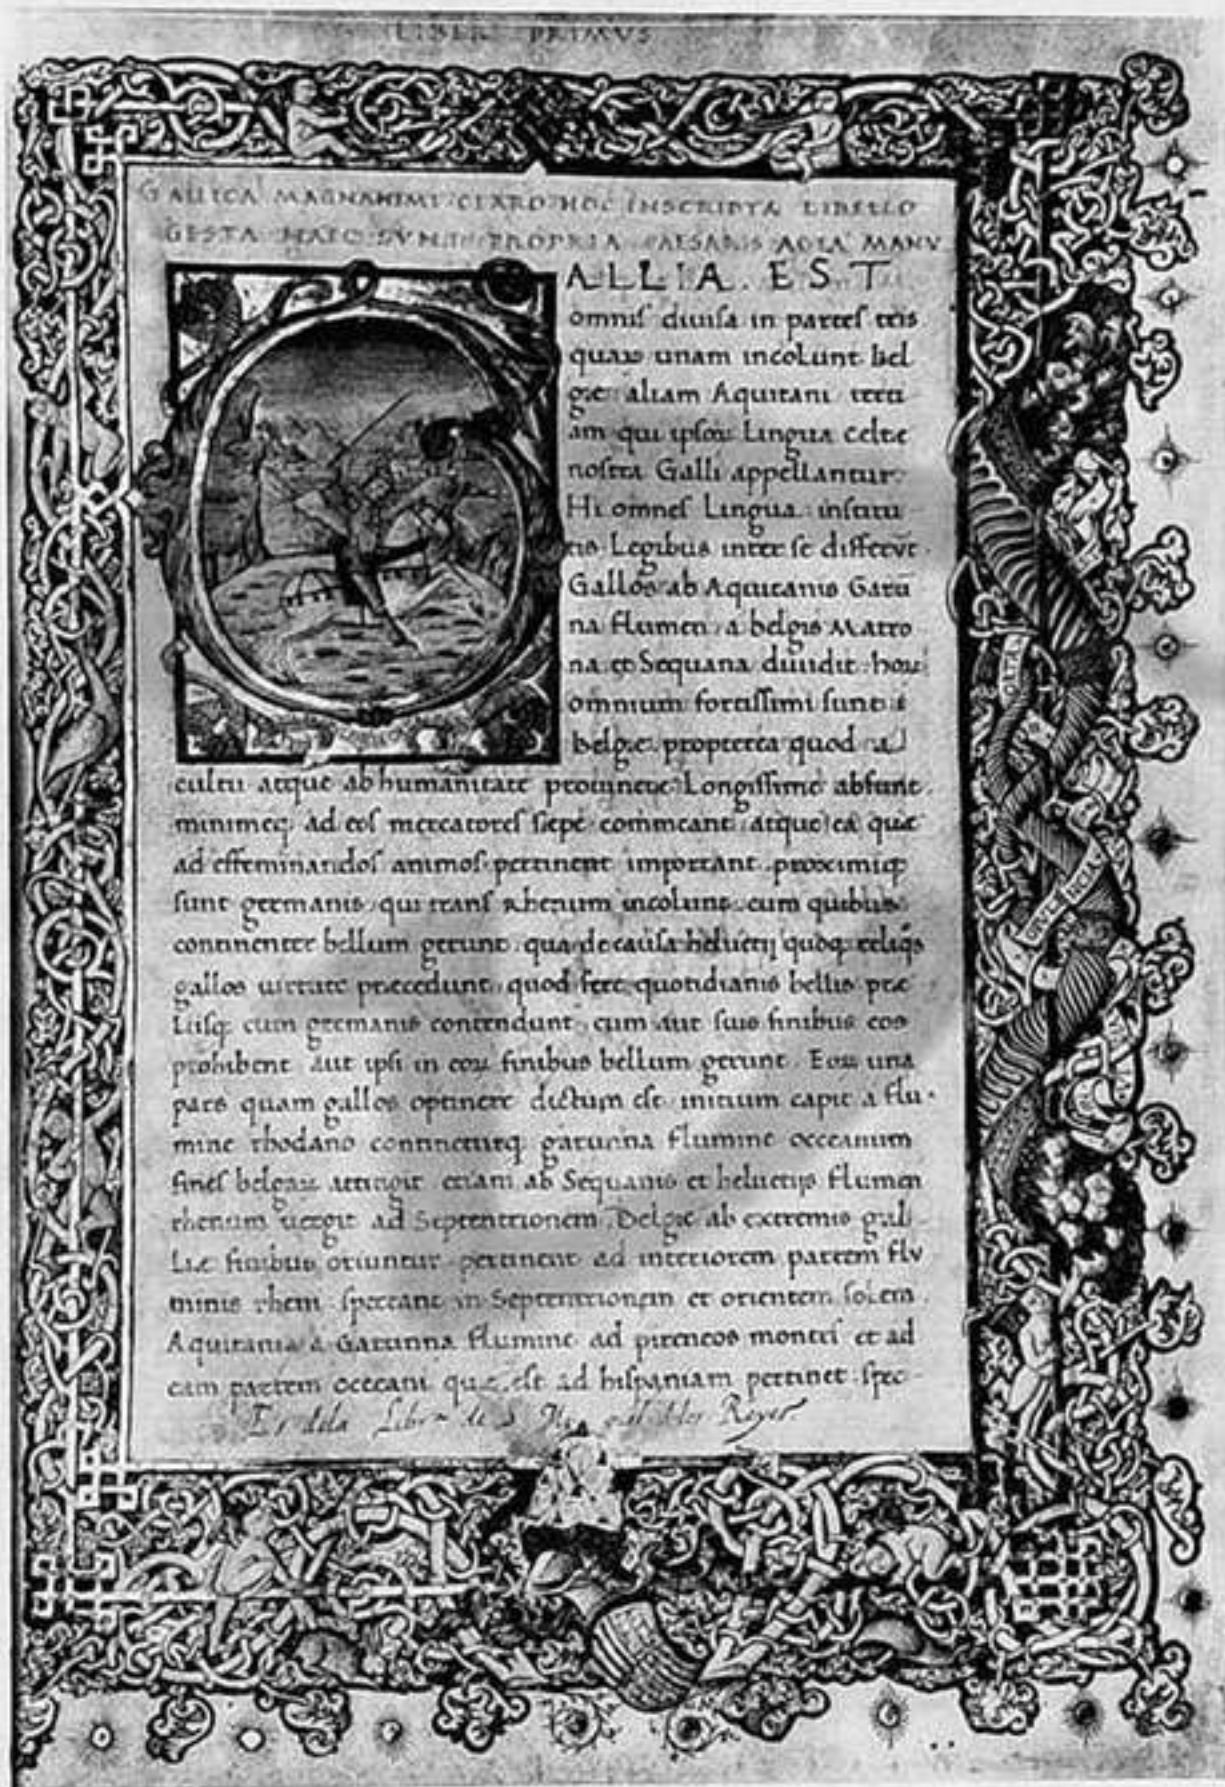 LIBER PRIMVS
GALLICA MAGNANIMI CLARO HOC INSCRIPTA LIBELLO
GESTA HAEC SVNT PROPRIA CAESARIS ACTA MANV
ALLIA. EST
omnis diuisa in partes tris
quarum unam incolunt bel
gæ aliam Aquitani terti
am qui ipsorum Lingua celtæ
nostra Galli appellantur
Hi omnes Lingua institu
tis Legibus inter se differūt
Gallos ab Aquitanis Garū
na flumen a belgis Matro
na et Sequana diuidit horum
omnium fortissimi sunt
belgæ propterea quod a
cultu atque ab humanitate prouinciæ Longissime absunt
minimeq; ad eos mercatores sæpe commeant atque ea quæ
ad effeminandos animos pertinent important proximiq;
sunt germanis qui trans rhenum incolunt cum quibus
continenter bellum gerunt qua de causa heluetij quoq; reliqos
gallos uirtute præcedunt quod fere quotidianis bellis præ
Liisq; cum germanis contendunt cum aut suis finibus eos
prohibent aut ipsi in eorum finibus bellum gerunt. Eorum una
pars quam gallos optinere dictum est initium capit a flu
mine rhodano contineturq; garunna flumine occeanum
fines belgarum attingit etiam ab Sequanis et heluetijs flumen
rhenum uergit ad Septentrionem. Belgæ ab extremis gal
Liæ finibus oriuntur pertinent ad interiorem partem flu
minis rheni spectant in Septentrionem et orientem solem
Aquitania a Garunna flumine ad pireneos montes et ad
eam partem occeani quæ est ad hispaniam pertinet spec
Es dela Libr.a de S. Mig. delos Reyes